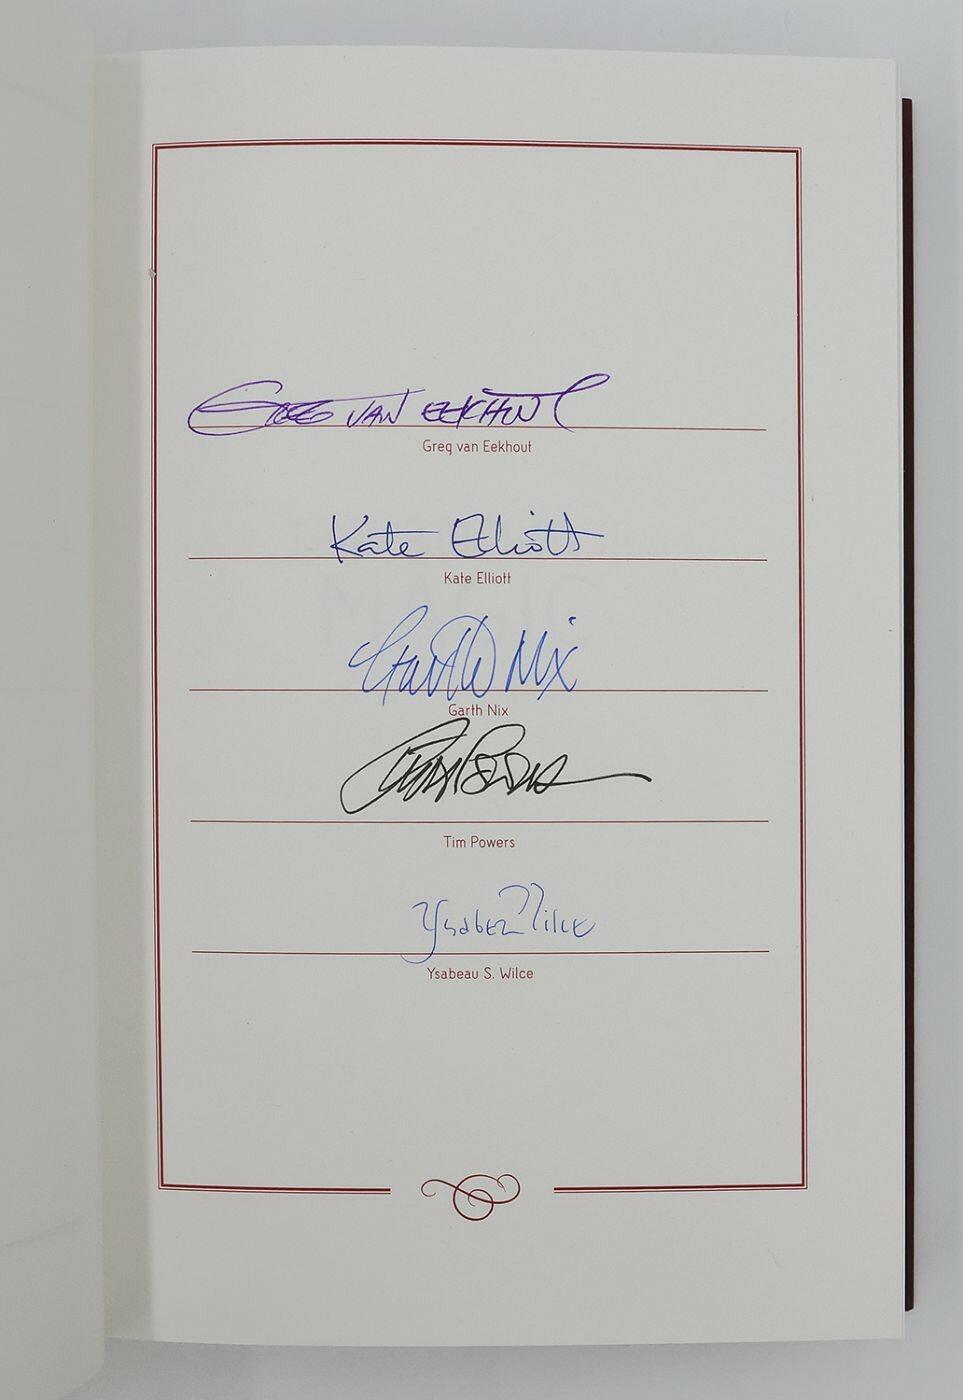 Greg van Eekhout
Greg van Eekhout
Kate Elliott
Kate Elliott
Garth Nix
Garth Nix
Tim Powers
Tim Powers
Ysabeau Wilce
Ysabeau S. Wilce